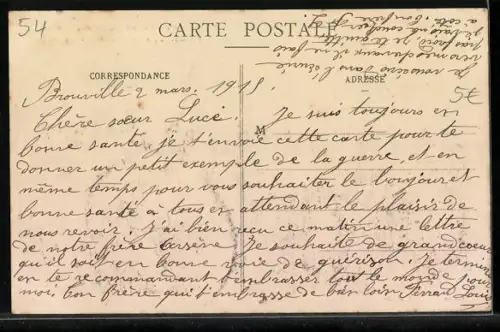 54
CARTE POSTALE
CORRESPONDANCE
ADRESSE
5€
M
Brouville 2 mars. 1915.
Chère sœur Luce. Je suis toujours en
bonne santé, je t'envoie cette carte pour te
donner un petit exemple de la guerre, et en
même temps pour vous souhaiter le bonjour et
bonne santé à tous en attendant le plaisir de
nous revoir. J'ai bien reçu ce matin une lettre
de notre frère Arsène Je souhaite de grand coeur
qu'il soit en bonne voie de guérison. Je termine
en te recommandant d'embrasser tout le monde pour
moi, ton frère qui t'embrasse de bien loin Ferrand Louis